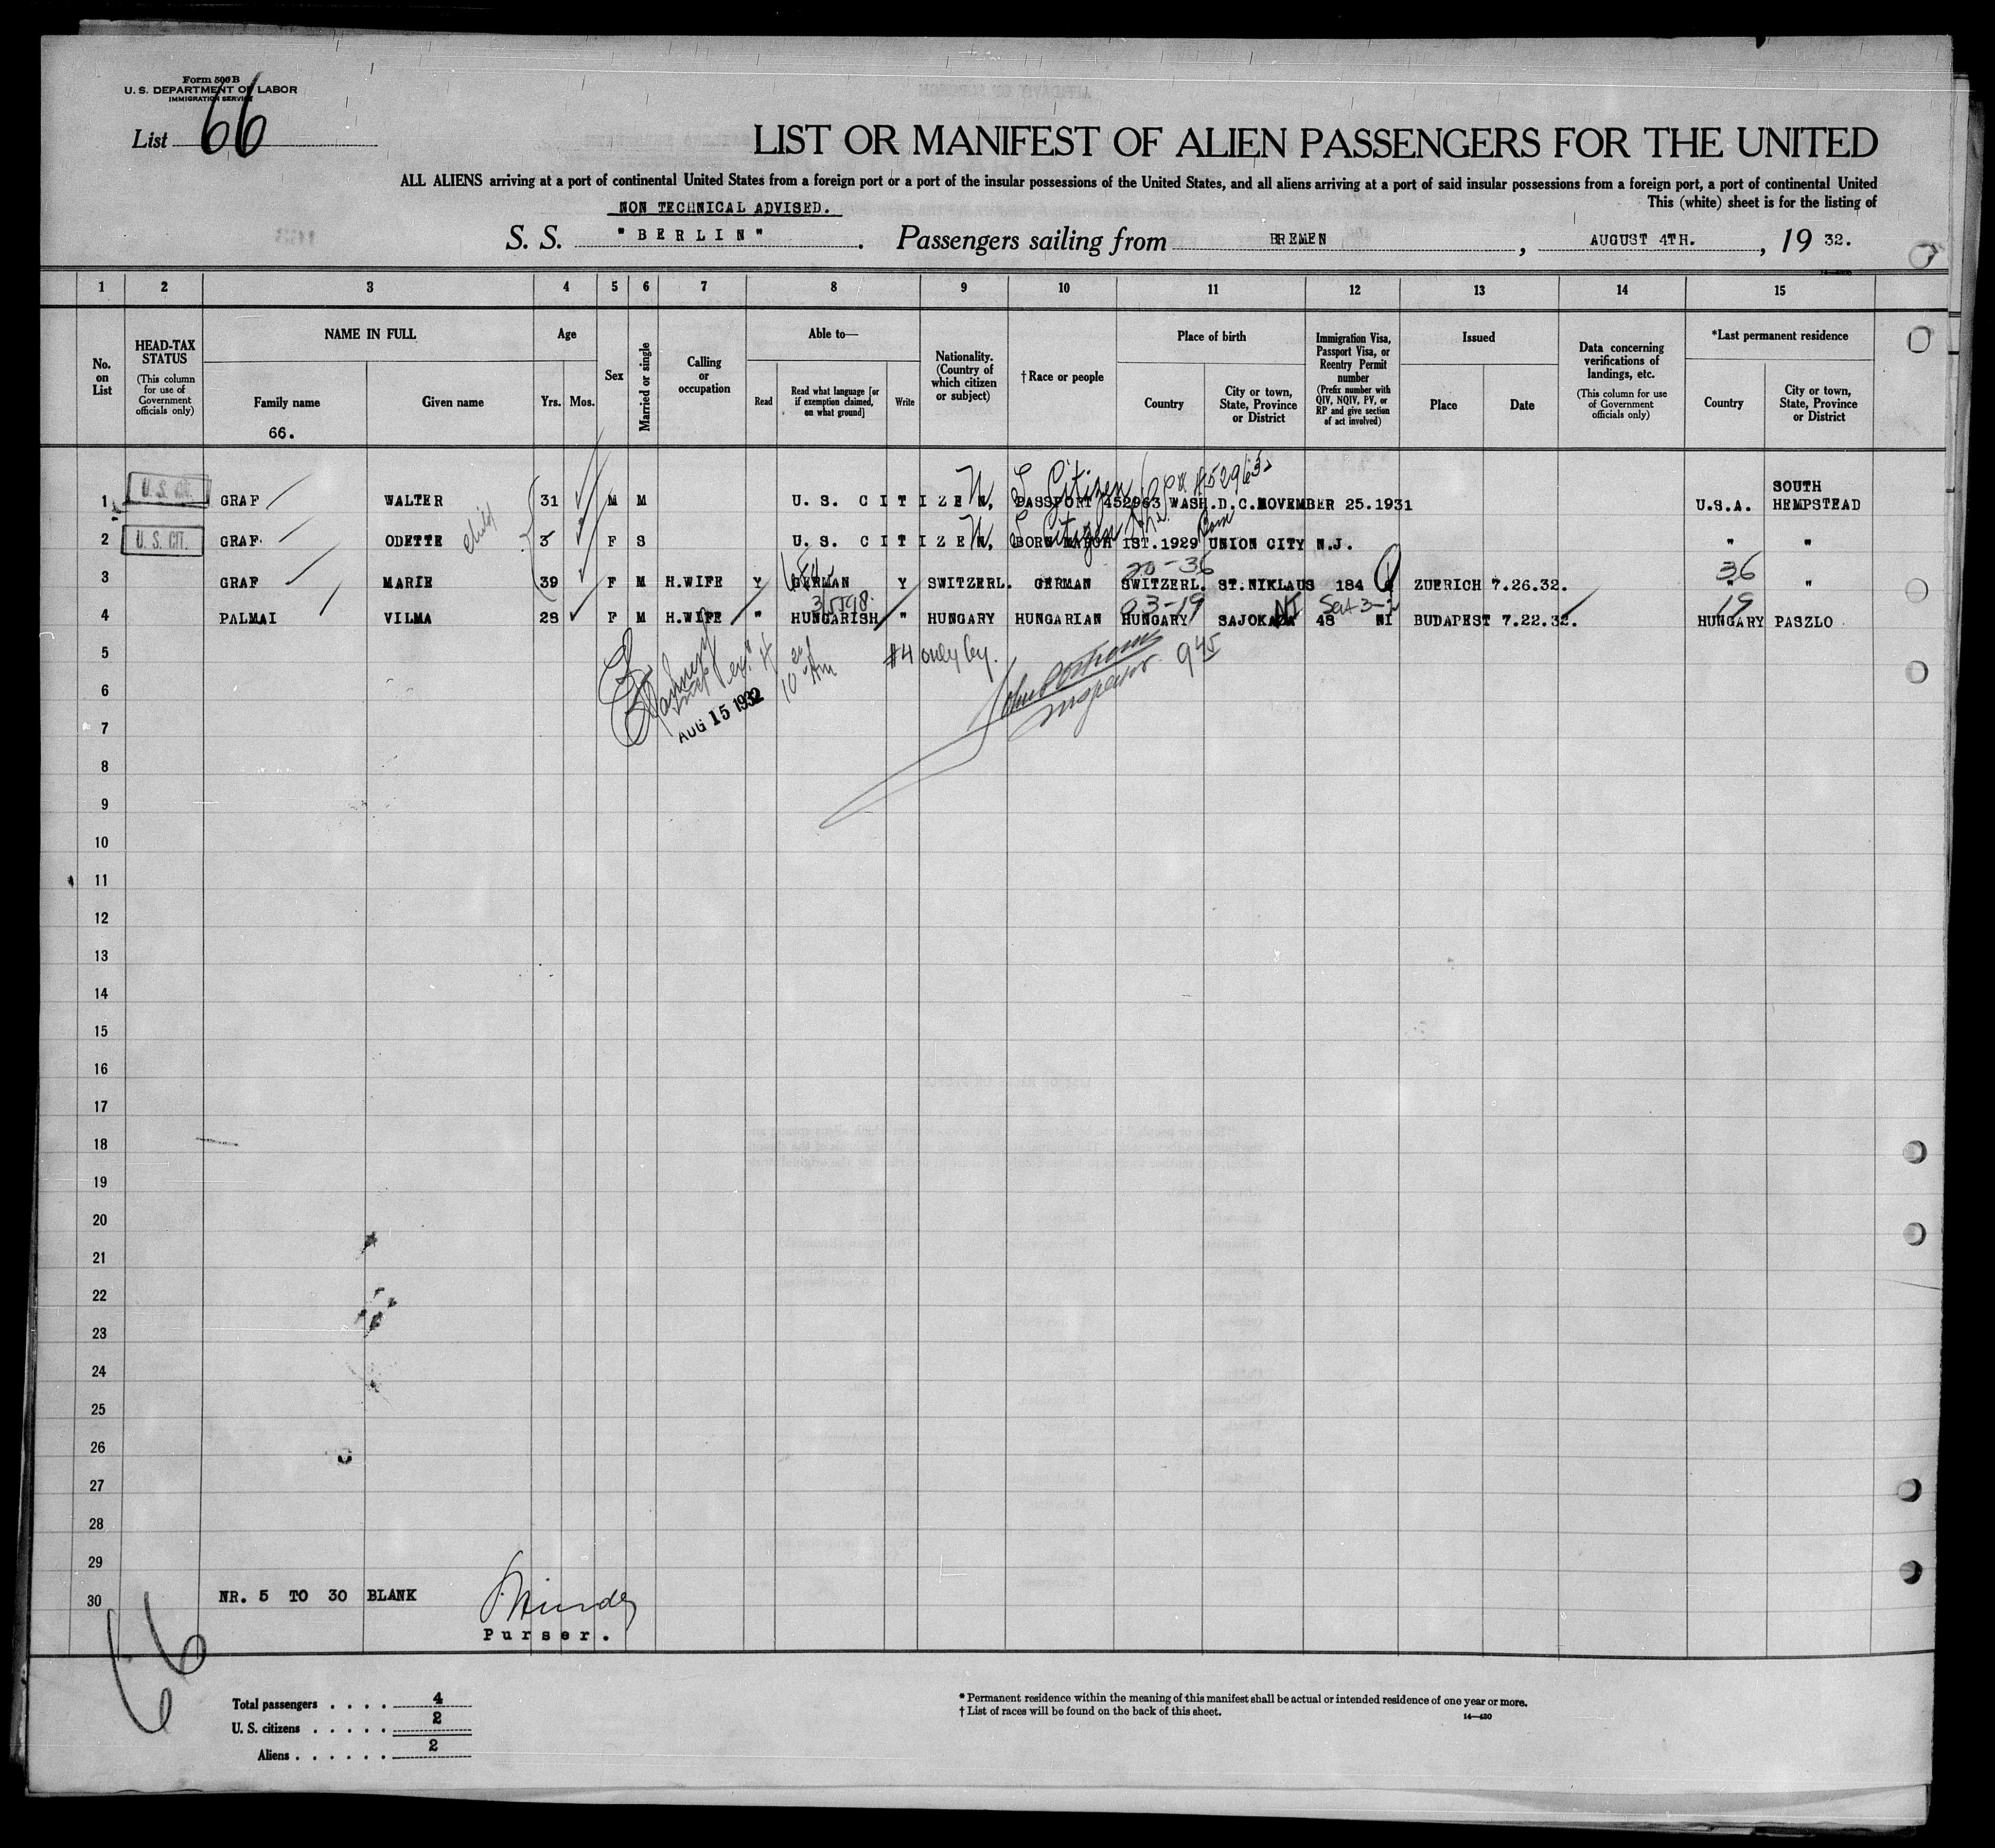 Form 500 B
U. S. DEPARTMENT OF LABOR
IMMIGRATION SERVICE
List 66
LIST OR MANIFEST OF ALIEN PASSENGERS FOR THE UNITED
ALL ALIENS arriving at a port of continental United States from a foreign port or a port of the insular possessions of the United States, and all aliens arriving at a port of said insular possessions from a foreign port, a port of continental United
NON TECHNICAL ADVISED. This (white) sheet is for the listing of
S. S. "BERLIN". Passengers sailing from BREMEN, AUGUST 4TH., 19 32.
1 2 3 4 5 6 7 8 9 10 11 12 13 14 15
No. on List
HEAD-TAX STATUS
(This column for use of Government officials only)
NAME IN FULL
Family name
66.
Given name
Age
Yrs. Mos.
Sex
Married or single
Calling or occupation
Able to—
Read
Read what language [or if exemption claimed, on what ground]
Write
Nationality. (Country of which citizen or subject)
†Race or people
Place of birth
Country
City or town, State, Province or District
Immigration Visa, Passport Visa, or Reentry Permit number
(Prefix number with QIV, NQIV, PV, or RP and give section of act involved)
Issued
Place
Date
Data concerning verifications of landings, etc.
(This column for use of Government officials only)
*Last permanent residence
Country
City or town, State, Province or District
N S Citizen PP# 452963
1 U.S. CIT. GRAF WALTER 31 M M U. S. CITIZEN, PASSPORT 452963 WASH.D.C.NOVEMBER 25.1931 U.S.A. SOUTH HEMPSTEAD
child
N S Citizen Born
2 U.S. CIT. GRAF ODETTE 3 F S U. S. CITIZEN, BORN MARCH 1ST.1929 UNION CITY N.J. " "
20-36 36
3 GRAF MARIE 39 F M H.WIFE Y GERMAN Y SWITZERL. GERMAN SWITZERL. ST.NIKLAUS 184 ZUERICH 7.26.32. " "
03-19 NI 19
4 PALMAI VILMA 28 F M H.WIFE " HUNGARISH " HUNGARY HUNGARIAN HUNGARY 48 NI BUDAPEST 7.22.32. HUNGARY PASZLO
5
#4 only by.
John
Inspector 9 45
10 AM
6
AUG 15 1932
7
8
9
10
11
12
13
14
15
16
17
18
19
20
21
22
23
24
25
26
27
28
29
30 NR. 5 TO 30 BLANK
Purser.
66
Total passengers . . . . 4
U. S. citizens . . . . . 2
Aliens . . . . . . 2
* Permanent residence within the meaning of this manifest shall be actual or intended residence of one year or more.
† List of races will be found on the back of this sheet.
14—430